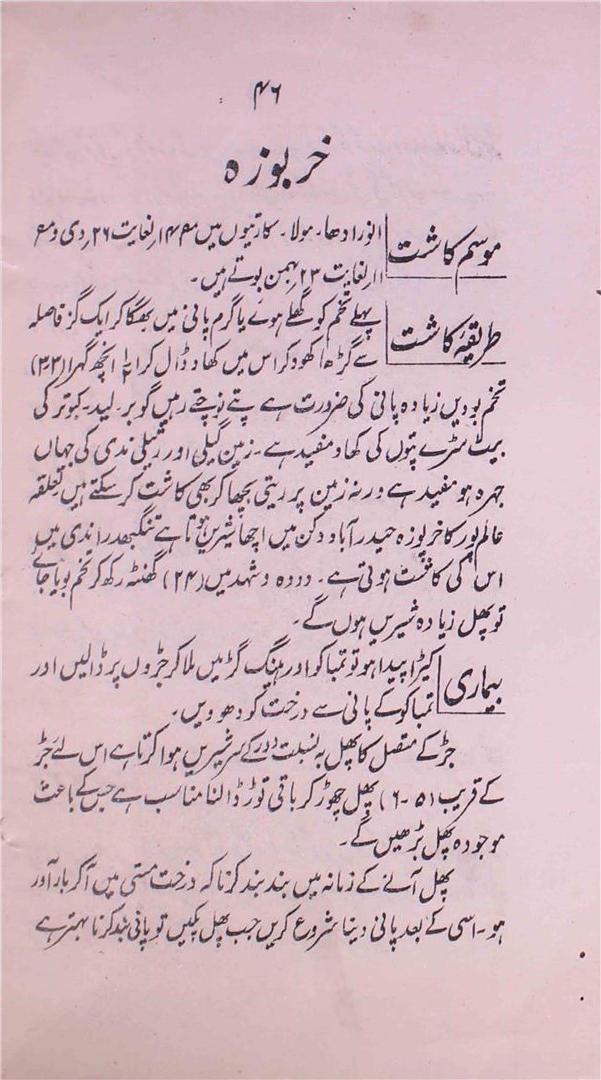 ۴۶
خربوزہ
موسم کاشت
انورادھا۔ مولا۔ کارتیوں میں لغایت ۲۶ دی و م
۱۱ لغایت ۲۳ بہمن بوتے ہیں۔
طریقۂ کاشت
پہلے تخم کو گھلے ہوئے یا گرم پانی میں بھگا کر ایک گز فاصلہ
سے گڑھا کھود کر اس میں کھاد ڈال کر انچھ گہرا (۳،۲)
تخم بودیں زیادہ پانی کی ضرورت ہے پتے نوچتے رہیں گوبر۔ لید۔ کبوتر کی
بیٹ سڑے پتوں کی کھاد مفید ہے۔ زمین گیلی اور رتیلی ندی کی جہاں
جہرہ ہو مفید ہے ورنہ زمین پر ریتی بچھا کر بھی کاشت کر سکتے ہیں تعلقہ
عالم پور کا خربوزہ حیدرآباد دکن میں اچھا شیریں ہوتا ہے تنگبھدرا ندی میں
اس کی کاشت ہوتی ہے۔ دودہ و شہد میں (۲۴) گھنٹہ رکھ کر تخم بویا جائے
تو پھل زیادہ شیریں ہوں گے۔
بیماری
کیڑا پیدا ہو تو تمباکو اور ہینگ گڑ میں ملا کر جڑوں پر ڈالیں اور
تمباکو کے پانی سے درخت کو دھو ویں۔
جڑ کے متصل کا پھل بہ نسبت دور کے شیریں ہوا کرتا ہے اس لئے جڑ
کے قریب (۵۔۶) پھل چھوڑ کر باقی توڑ ڈالنا مناسب ہے جس کے باعث
موجودہ پھل بڑھیں گے۔
پھل آنے کے زمانہ میں بند بند کرنا کہ درخت مستی میں آ کر بار آور
ہو۔ اسی کے بعد پانی دینا شروع کریں جب پھل پکیں تو پانی بند کرنا بہتر ہے